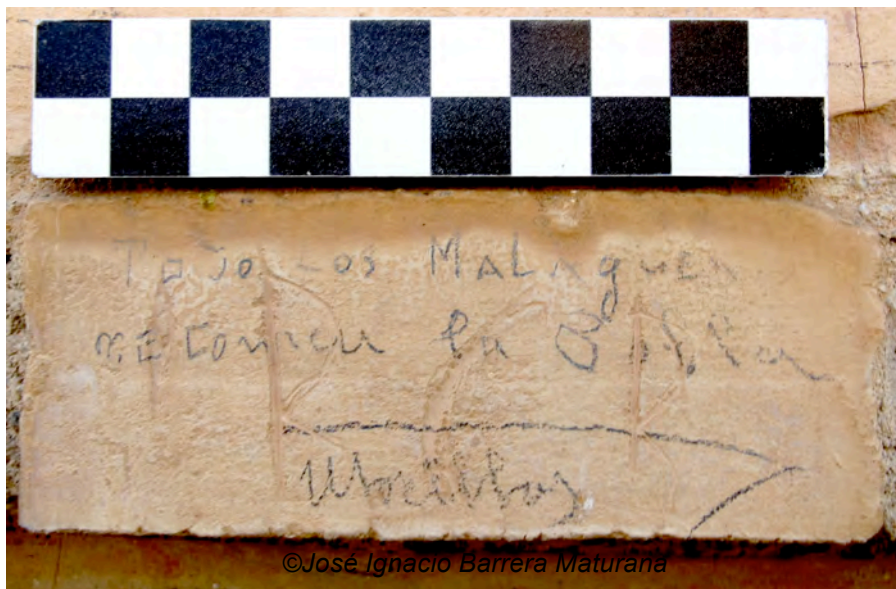 Todo los Malagueñ
me comen la Polla
©José Ignacio Barrera Maturana